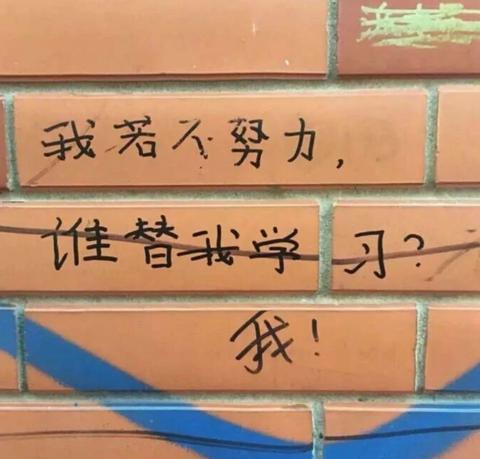 我若不努力，
谁替我学习？
我！